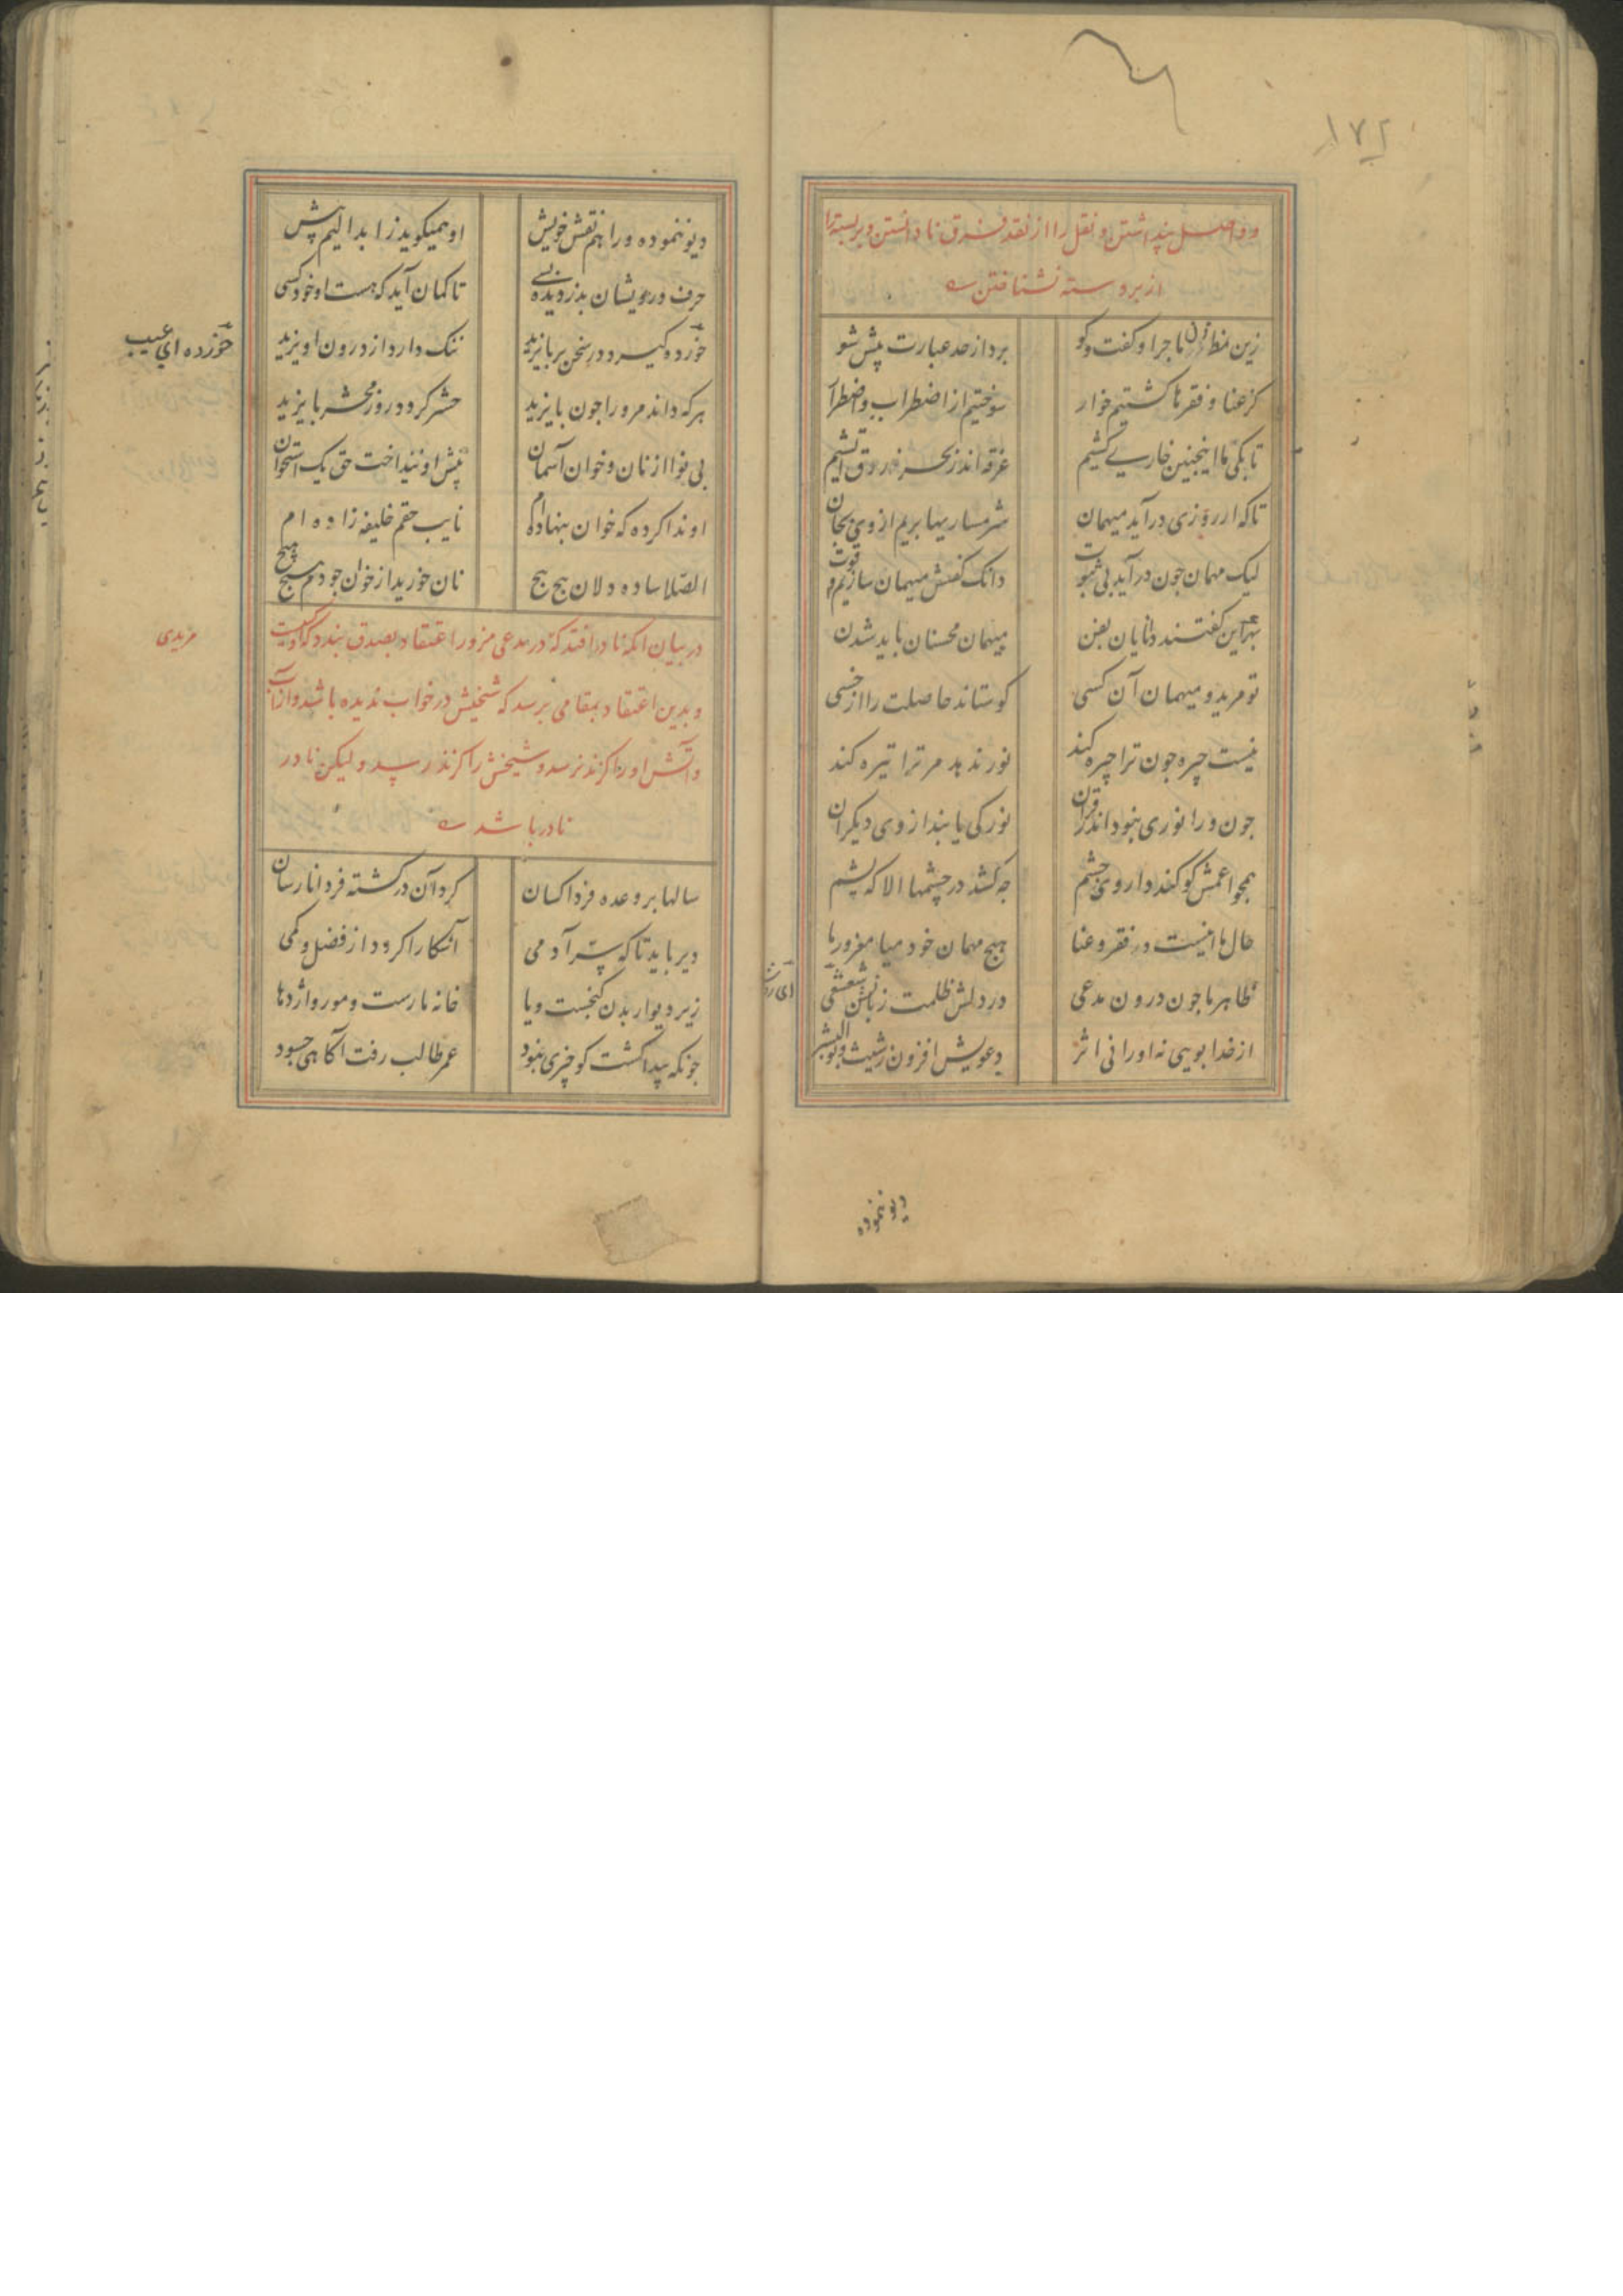 ۱۷۲
و واصل پنداشتن و نقل را از نقد فرق نادانستن و بربسته را
از بر رسته نشناختن
زین نمط زن ماجرا و کفت و کو
برد از حد عبارت پیش شو
کز عنا و فقر ما کشتیم خوار
سوختیم از اضطراب و اضطرار
تا بکی ما اینجنین خاری کشیم
غرقه اندر بحر ژرف آتشیم
تا که ار روزی در آید میهمان
شرمساریها بریم از وی بجان
لیک مهمان جون در آید بی ثبوت
دانک کفشش میهمان سازیم قوت
بهر این کفتند دانایان بفن
میهمان محسنان باید شدن
تو مرید و میهمان آن کسی
کو ستاند حاصلت را از خسی
نیست جیره جون ترا جیره کند
نور ندهد مر ترا تیره کند
جون ورا نوری نبود اندر قران
نور کی یابند از وی دیکران
همجو اعمش کو کند داروی جشم
جه کشد در جشمها الا که یشم
حال ما اینست در فقر و عنا
هیج مهمان خود میا مغرور ما
ظاهر ما جون درون مدعی
در دلش ظلمت زبانش شعشعی
از خدا بویی نه او را نی اثر
دعویش افزون ز شیث و بوالبشر
دیو ننموده
دیو ننموده ورا هم نقش خویش
او همیکوید ز ابدالیم پیش
حرف درویشان بدزدیده بسی
تا کمان آید که هست او خود کسی
خورده کیرد در سخن بر بایزید
ننک دارد از درون او یزید
خورده ای عیب
هرکه داند مر ورا جون بایزید
حشر کردد روز محشر با یزید
بی نوا از نان و خوان آسمان
پیش او ننداخت حق یک استخوان
او ندا کرده که خوان بنهاده ام
نایب حقم خلیفه زاده ام
الصلا ساده دلان پیج پیج
نان خورید از خوان جودم هیج هیج
در بیان آنکه نادر افتد که در مدعی مزور اعتقاد بصدق بندد که او کیست
مریدی
و بدین اعتقاد بمقامی برسد که شیخش در خواب ندیده باشد و از آب
و آتش او را کزند نرسد و شیخش را کزند رسد و لیکن نادر
نادر باشد
سالها بر وعده فردا کسان
کرد آن در کشته فردا نارسان
دیر باید تا که سر آدمی
آشکارا کردد از فضل و کمی
زیر دیوار بدن کنجست و یا
خانه مارست و مور و اژدها
جونکه پیدا کشت کو جیزی نبود
عمر طالب رفت آکاهی جه سود